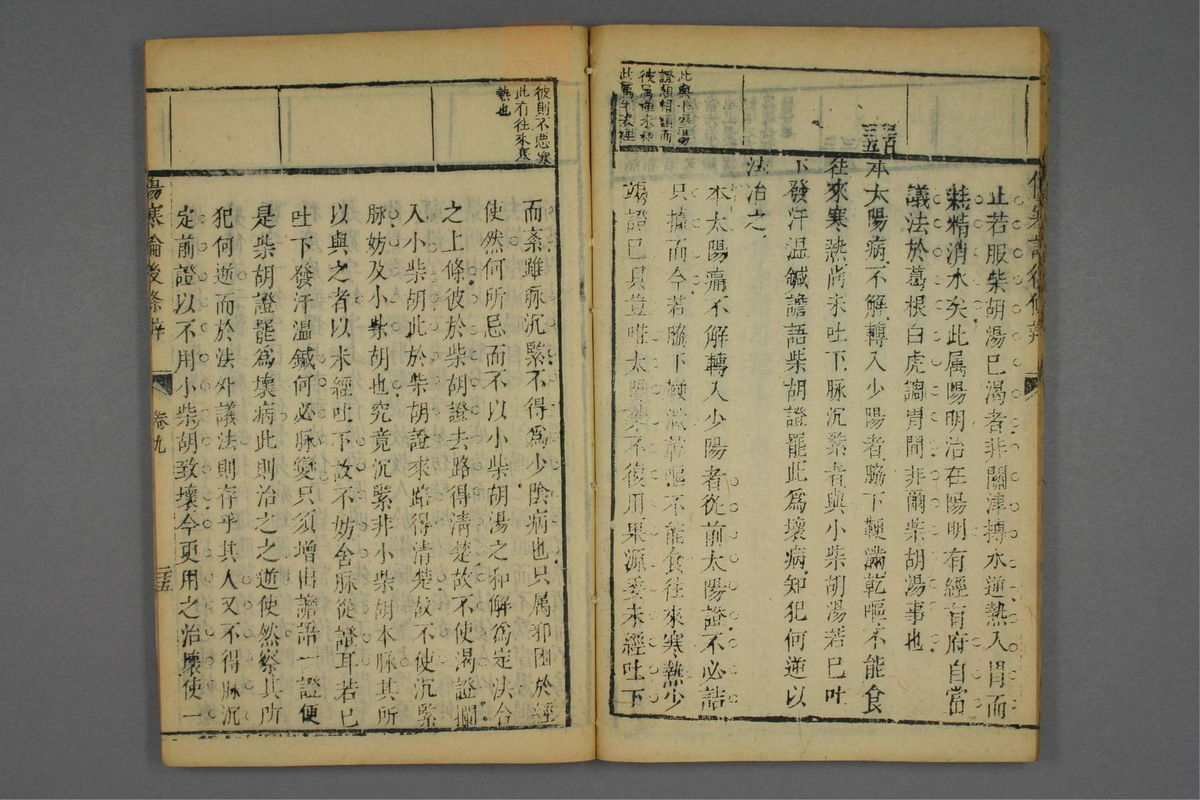 此與
證頗相類而
三百
三五
止若服柴胡湯已渴者非關津搏水逆熱入胃而
耗精消水矣此属陽明治在陽明有經有府自當
議法於葛根白虎調胃間非爾柴胡湯事也
本太陽病不解轉入少陽者脇下鞕滿乾嘔不能食
往來寒熱尚未吐下脉沉緊者與小柴胡湯若已吐
下發汗温鍼譫語柴胡證罷此爲壞病知犯何逆以
法治之
本太陽病不解轉入少陽者從前太陽證不必詰
只據而今若脇下鞕滿乾嘔不能食往來寒熱少
陽證已具豈唯太陽藥不復用果源委未經吐下
彼則不惡寒
此有往來寒
熱也
而紊雖脉沉緊不得爲少陰病也只属邪困於經
使然何所忌而不以小柴胡湯之和解爲定法合
之上條彼於柴胡證去路得清楚故不使渴證攔
入小柴胡此於柴胡證來路得清楚故不使沉緊
脉妨及小柴胡也究竟沉緊非小柴胡本脉其所
以與之者以未經吐下故不妨舍脉從證耳若已
吐下發汗温鍼何必脉變只須增出譫語一證便
是柴胡證罷爲壞病此則治之之逆使然察其所
犯何逝而於法外議法則存乎其人又不得脉沉
定前證以不用小柴胡致壞今更用之治壞使一
傷寒論後條辨
卷九
三五